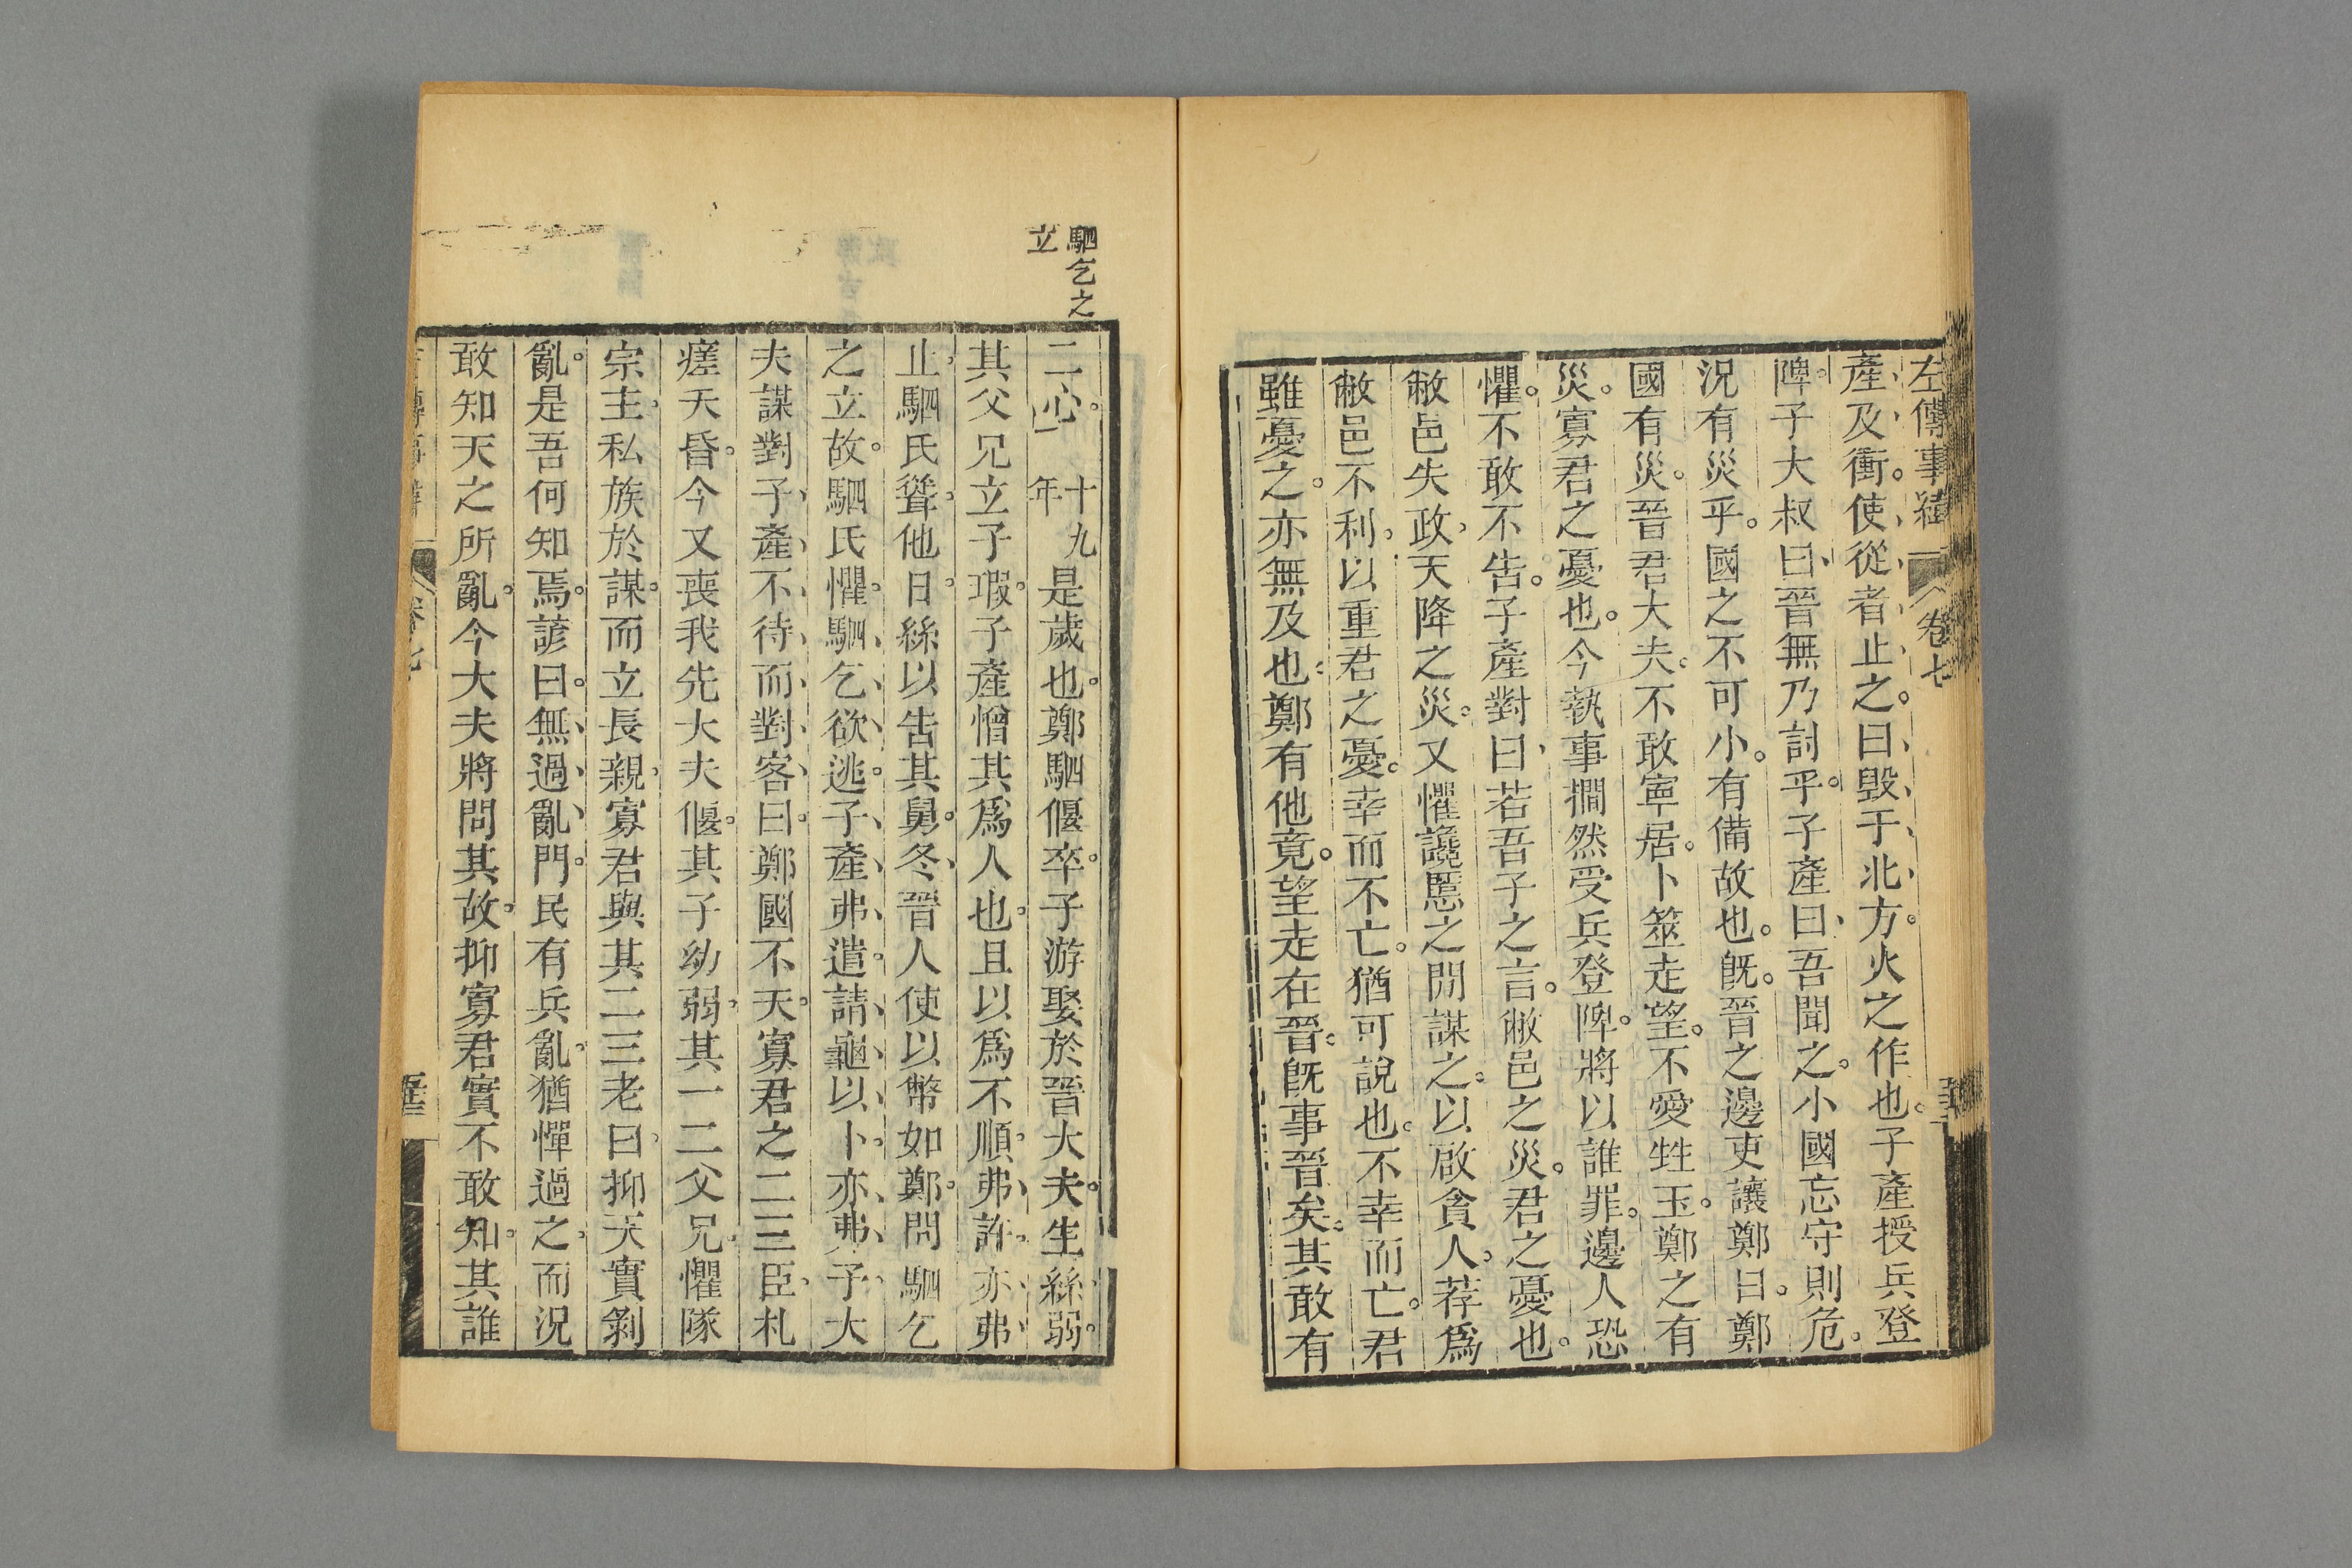 左傳事緯 卷七
產及衝使從者止之曰毀于北方火之作也子產授兵登
陴子大叔曰晉無乃討乎子產曰吾聞之小國忘守則危
況有災乎國之不可小有備故也旣晉之邊吏讓鄭曰鄭
國有災晉君大夫不敢寧居卜筮走望不愛牲玉鄭之有
災寡君之憂也今執事撊然受兵登陴將以誰罪邊人恐
懼不敢不告子產對曰若吾子之言敝邑之災君之憂也
敝邑失政天降之災又懼讒慝之閒謀之以啟貪人荐爲
敝邑不利以重君之憂幸而不亡猶可說也不幸而亡君
雖憂之亦無及也鄭有他竟望走在晉旣事晉矣其敢有
駟乞之
立
二心 十九年是歲也鄭駟偃卒子游娶於晉大夫生絲弱
其父兄立子瑕子產憎其爲人也且以爲不順弗許亦弗
止駟氏聳他日絲以告其舅冬晉人使以幣如鄭問駟乞
之立故駟氏懼駟乞欲逃子產弗遣請龜以卜亦弗予大
夫謀對子產不待而對客曰鄭國不天寡君之二三臣札
瘥夭昏今又喪我先大夫偃其子幼弱其一二父兄懼隊
宗主私族於謀而立長親寡君與其二三老曰抑天實剝
亂是吾何知焉諺曰無過亂門民有兵亂猶憚過之而況
敢知天之所亂今大夫將問其故抑寡君實不敢知其誰